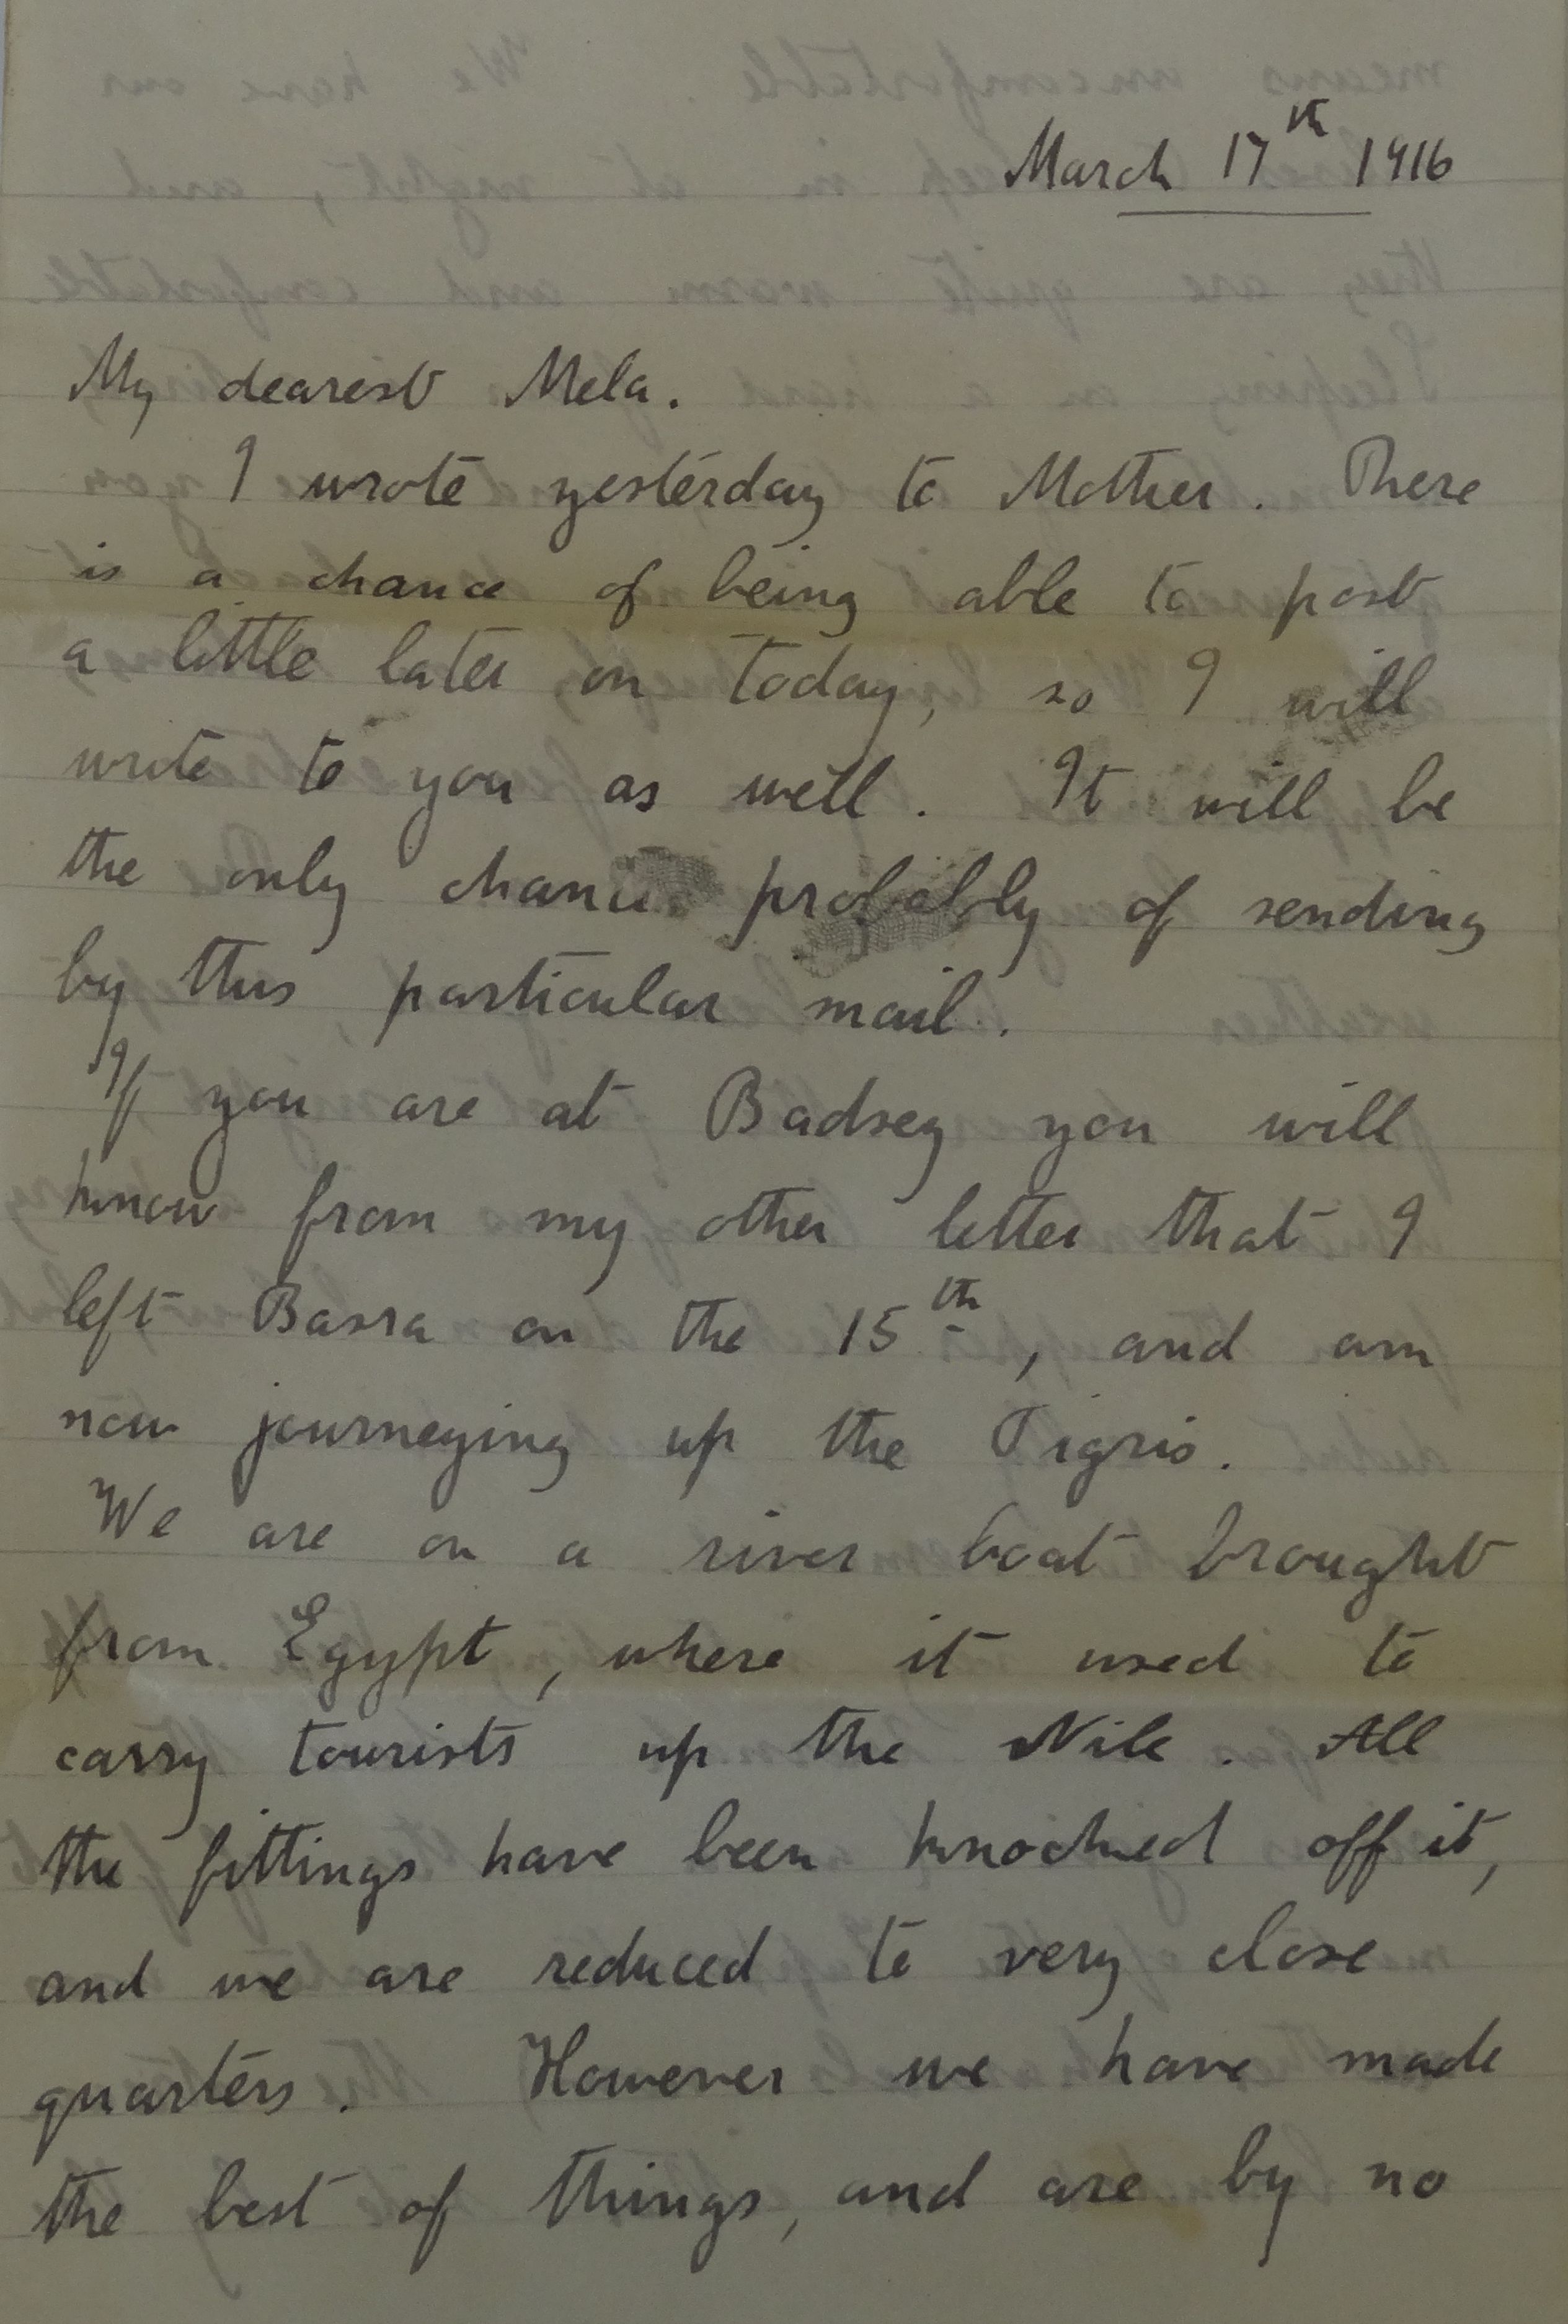 March 17th 1916
My dearest Mela.
I wrote yesterday to Mother. There
is a chance of being able to post
a little later on today, so I will
write to you as well. It will be
the only chance probably of sending
by this particular mail.
If you are at Badsey you will
know from my other letter that I
left Basra on the 15th, and am
now journeying up the Tigris.
We are on a river boat brought
from Egypt, where it used to
carry tourists up the Nile. All
the fittings have been knocked off it,
and we are reduced to very close
quarters. However we have made
the best of things, and are by no